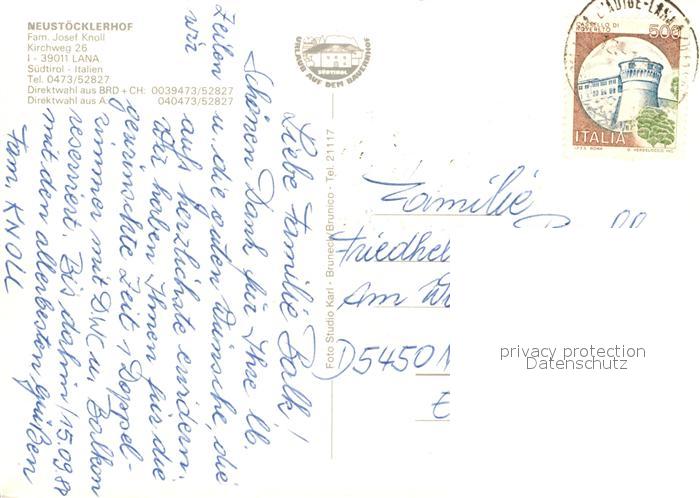 NEUSTÖCKLERHOF
Fam. Josef Knoll
Kirchweg 26
I - 39011 LANA
Südtirol - Italien
Tel. 0473/52827
Direktwahl aus BRD + CH: 0039473/52827
Direktwahl aus A: 040473/52827
URLAUB AUF DEM BAUERNHOF
SÜDTIROL
Liebe Familie Balk!
Schönen Dank für Ihre lb.
Zeilen u. die guten Wünsche, die
wir aufs herzlichste erwidern.
Wir haben Ihnen für die
gewünschte Zeit 1 Doppel-
zimmer mit DWC u. Balkon
reserviert. Bis dahin/15.09.88
mit den allerbesten Grüßen
Fam. KNOLL
Foto Studio Karl - Bruneck/Brunico - Tel. 21117
L'ADIGE-LANA
CASTELLO DI
ROVERETO
500
ITALIA
I.P.Z.S. ROMA
Familie
Friedhel
Am
D5450
E
privacy protection
Datenschutz